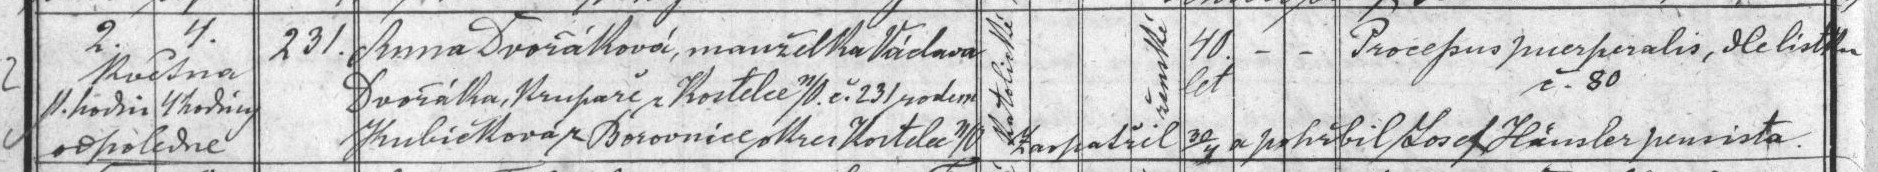 2. 4. 231. Anna Dvořáková, manželka Václava katolické ženské 40. – – Processus puerperalis, dle lístku
Května Dvořáka, krupaře z Kostelce n/O. č. 231 rodem let č. 80
11. hodin 4 hodiny Kubíčková z Borovnice okres Kostelec n/O Zaopatřil 30/4 a pohřbil Josef Hänsler pensista.
odpoledne